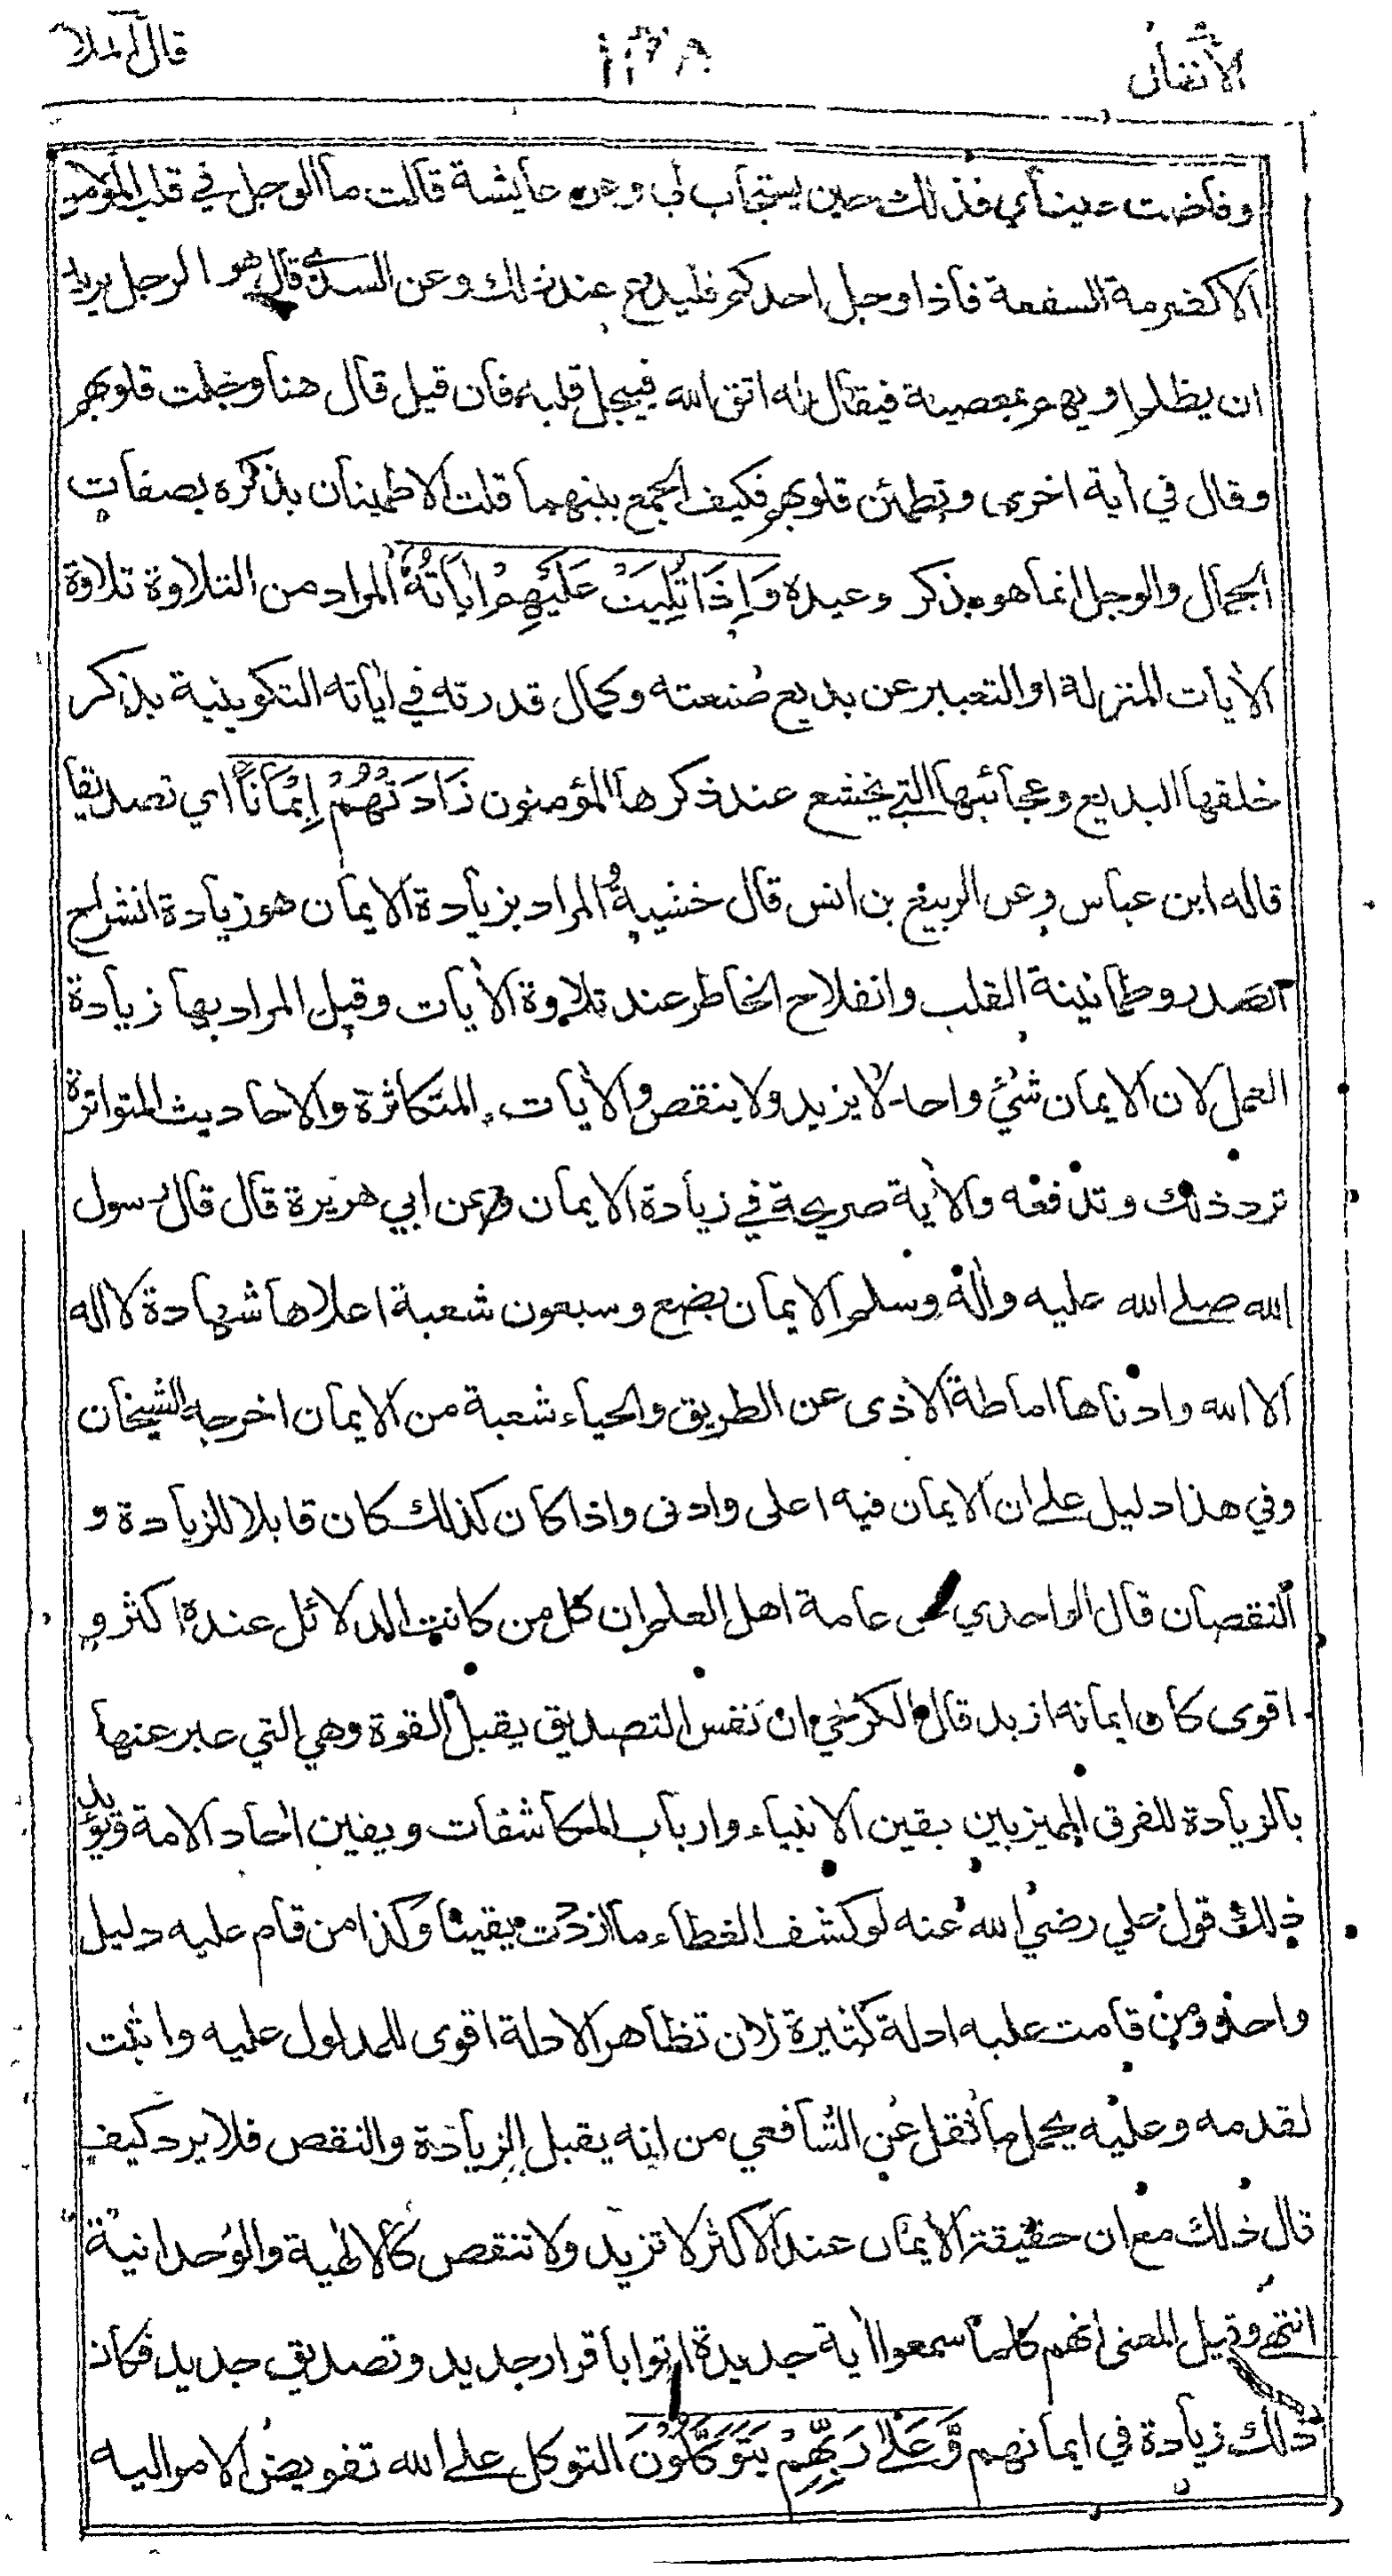 الأنفال
قال الملأ
وفاضت عيناي فذلك حين يستجاب لي وعن عايشة قالت ما الوجل في قلب المؤمن
الا كضرمة السفعة فاذا وجل احدكم فليدع عند ذلك وعن السدى قال هو الرجل يريد
ان يظلم او يهم بمعصية فيقال له اتق الله فيجل قلبه فان قيل قال هنا وجلت قلوبهم
وقال في أية اخرى وتطمئن قلوبهم فكيف الجمع بينهما قلت الاطمينان بذكره بصفات
الجمال والوجل انما هو بذكر وعيده وَإِذَا تُلِيَتْ عَلَيْهِمْ اٰيَاتُهُ المراد من التلاوة تلاوة
الأيات المنزلة او التعبير عن بديع صنعته وكمال قدرته في اٰياته التكوينية بذكر
خلقها البديع وعجائبها التي يخشع عند ذكرها المؤمنون زَادَتْهُمْ إِيْمَانًا اي تصديقا
قاله ابن عباس وعن الربيع بن انس قال خشية والمراد بزيادة الايمان هو زيادة انشراح
الصدر وطمانينة القلب وانفلاح الخاطر عند تلاوة الأيات وقيل المراد بها زيادة
العمل لان الايمان شئ واحد لا يزيد ولا ينقص والأيات المتكاثرة والاحاديث المتواترة
ترد ذلك وتدفعه والأية صريحة في زيادة الايمان وعن ابي هريرة قال قال رسول
الله صلى الله عليه واٰله وسلم الايمان بضع وسبعون شعبة اعلاها شهادة لا اله
الا الله وادناها اماطة الاذى عن الطريق والحياء شعبة من الايمان اخرجه الشيخان
وفي هذا دليل على ان الايمان فيه اعلى وادنى واذا كان كذلك كان قابلا للزيادة و
النقصان قال الواحدي عن عامة اهل العلم ان كل من كانت الدلائل عنده اكثر و
اقوى كان ايمانه ازيد قال الكرخي ان نفس التصديق يقبل القوة وهي التي عبر عنها
بالزيادة للفرق المميز بين يقين الانبياء وارباب المكاشفات ويقين اٰحاد الامة ويؤيد
ذلك قول علي رضي الله عنه لو كشف الغطاء ما ازددت يقينا وكذا من قام عليه دليل
واحد ومن قامت عليه ادلة كثيرة لان تظاهر الادلة اقوى للمدلول عليه واثبت
لقدمه وعليه يحمل ما نقل عن الشافعي من انه يقبل الزيادة والنقص فلا يرد كيف
قال ذلك مع ان حقيقة الايمان عند الاكثر لا تزيد ولا تنقص كالالهية والوحدانية
انتهى وقيل المعنى انهم كلما سمعوا اٰية جديدة اتوا باقرار جديد وتصديق جديد فكان
ذلك زيادة في ايمانهم وَّعَلٰى رَبِّهِمْ يَتَوَكَّلُوْنَ التوكل على الله تفويض الامر اليه